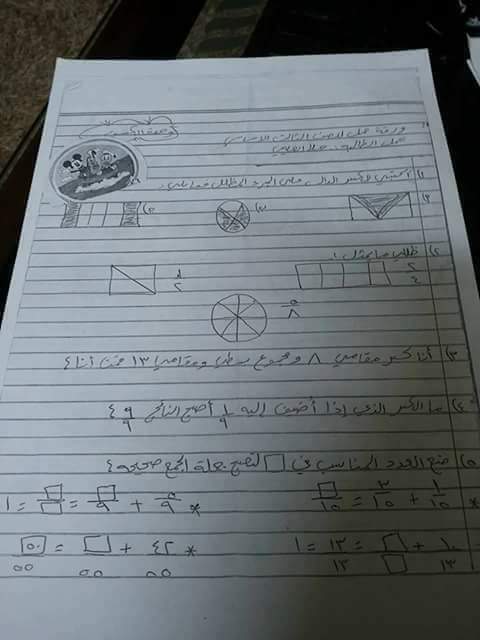 ورقة عمل للصف الثالث الاساسي
عمل الطالبة:
١) اكتبي الكسر الدال على الجزء المظلل فيما يلي:
٢) ظللي ما يمثل:
٢/٤
١/٢
٥/٨
٣) أنا كسر مقامي ٨ ومجموع بسطي ومقامي ١٣ فمن أنا؟
٤) ما الكسر الذي إذا أضيف إليه ١/٩ أصبح الناتج ٩/٩ ؟
٥) ضع العدد المناسب في □ لتصبح جملة الجمع صحيحة؟
* ١/١٥ + ٣/١٥ = □/١٥
* ٥/٩ + □/٩ = □/□ = ١
* ١٠/١٣ + □/□ = ١٣/١٣ = ١
* ٤٢/٥٥ + □/٥٥ = ٥٠/٥٥